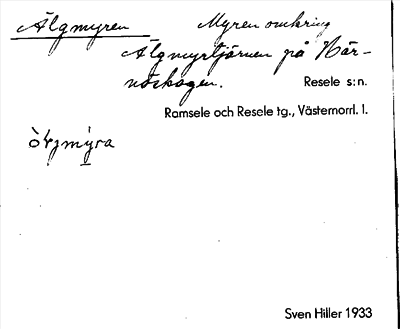 Älgmyren Myren omkring
Älgmyrtjärnen på När-
nöskogen. Resele s:n.
Ramsele och Resele tg., Västernorrl. l.
Sven Hiller 1933